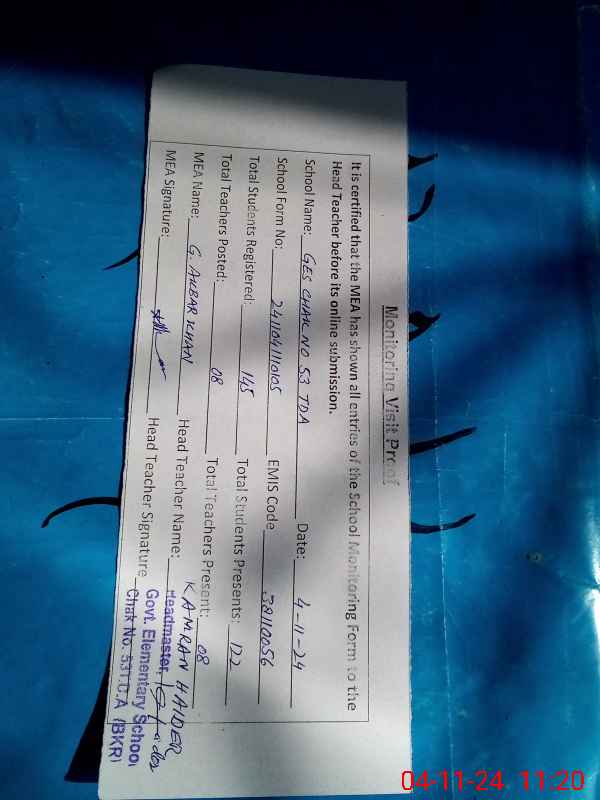 Monitoring Visit Proof
It is certified that the MEA has shown all entries of the School Monitoring Form to the
Head Teacher before its online submission.
School Name: GES CHAK NO 53 TDA Date: 4-11-24
School Form No: 241104111010S EMIS Code 38110056
Total Students Registered: 145 Total Students Presents: 122
Total Teachers Posted: 08 Total Teachers Present: 08
MEA Name: G. AKBAR KHAN Head Teacher Name: KAMRAN HAIDER
MEA Signature: Head Teacher Signature
Headmaster
Govt. Elementary School
Chak No. 53T.D.A (BKR)
04-11-24 11:20